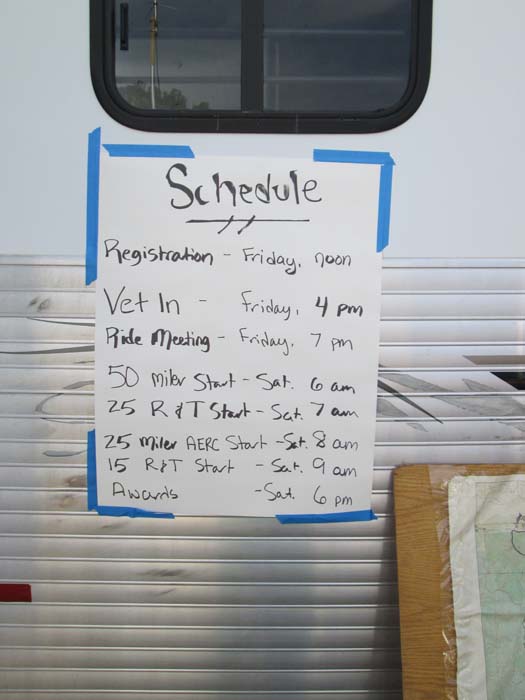 Schedule
Registration - Friday, noon
Vet In - Friday, 4 pm
Ride Meeting - Friday, 7 pm
50 Miler Start - Sat. 6 am
25 R & T Start - Sat. 7 am
25 Miler AERC Start - Sat. 8 am
15 R & T Start - Sat. 9 am
Awards - Sat. 6 pm